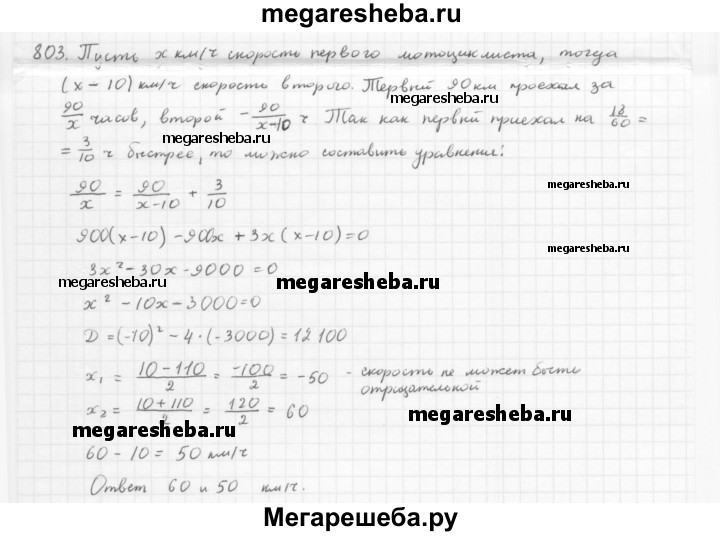 megaresheba.ru
803. Пусть x км/ч скорость первого мотоциклиста, тогда
(x – 10) км/ч скорость второго. Первый 90 км проехал за
megaresheba.ru
90/x часов, второй – 90/(x–10) ч Так как первый приехал на 18/60 =
megaresheba.ru
= 3/10 ч быстрее, то можно составить уравнения:
90/x = 90/(x-10) + 3/10
megaresheba.ru
900(x-10) - 900x + 3x(x-10)=0
megaresheba.ru
3x² - 30x - 9000 = 0
megaresheba.ru megaresheba.ru
x² - 10x - 3000=0
D = (-10)² - 4·(-3000) = 12 100
x₁ = (10-110)/2 = -100/2 = -50 - скорость не может быть
отрицательной
x₂ = (10+110)/2 = 120/2 = 60
megaresheba.ru
megaresheba.ru
60 - 10 = 50 км/ч
Ответ 60 и 50 км/ч.
Мегарешеба.ру